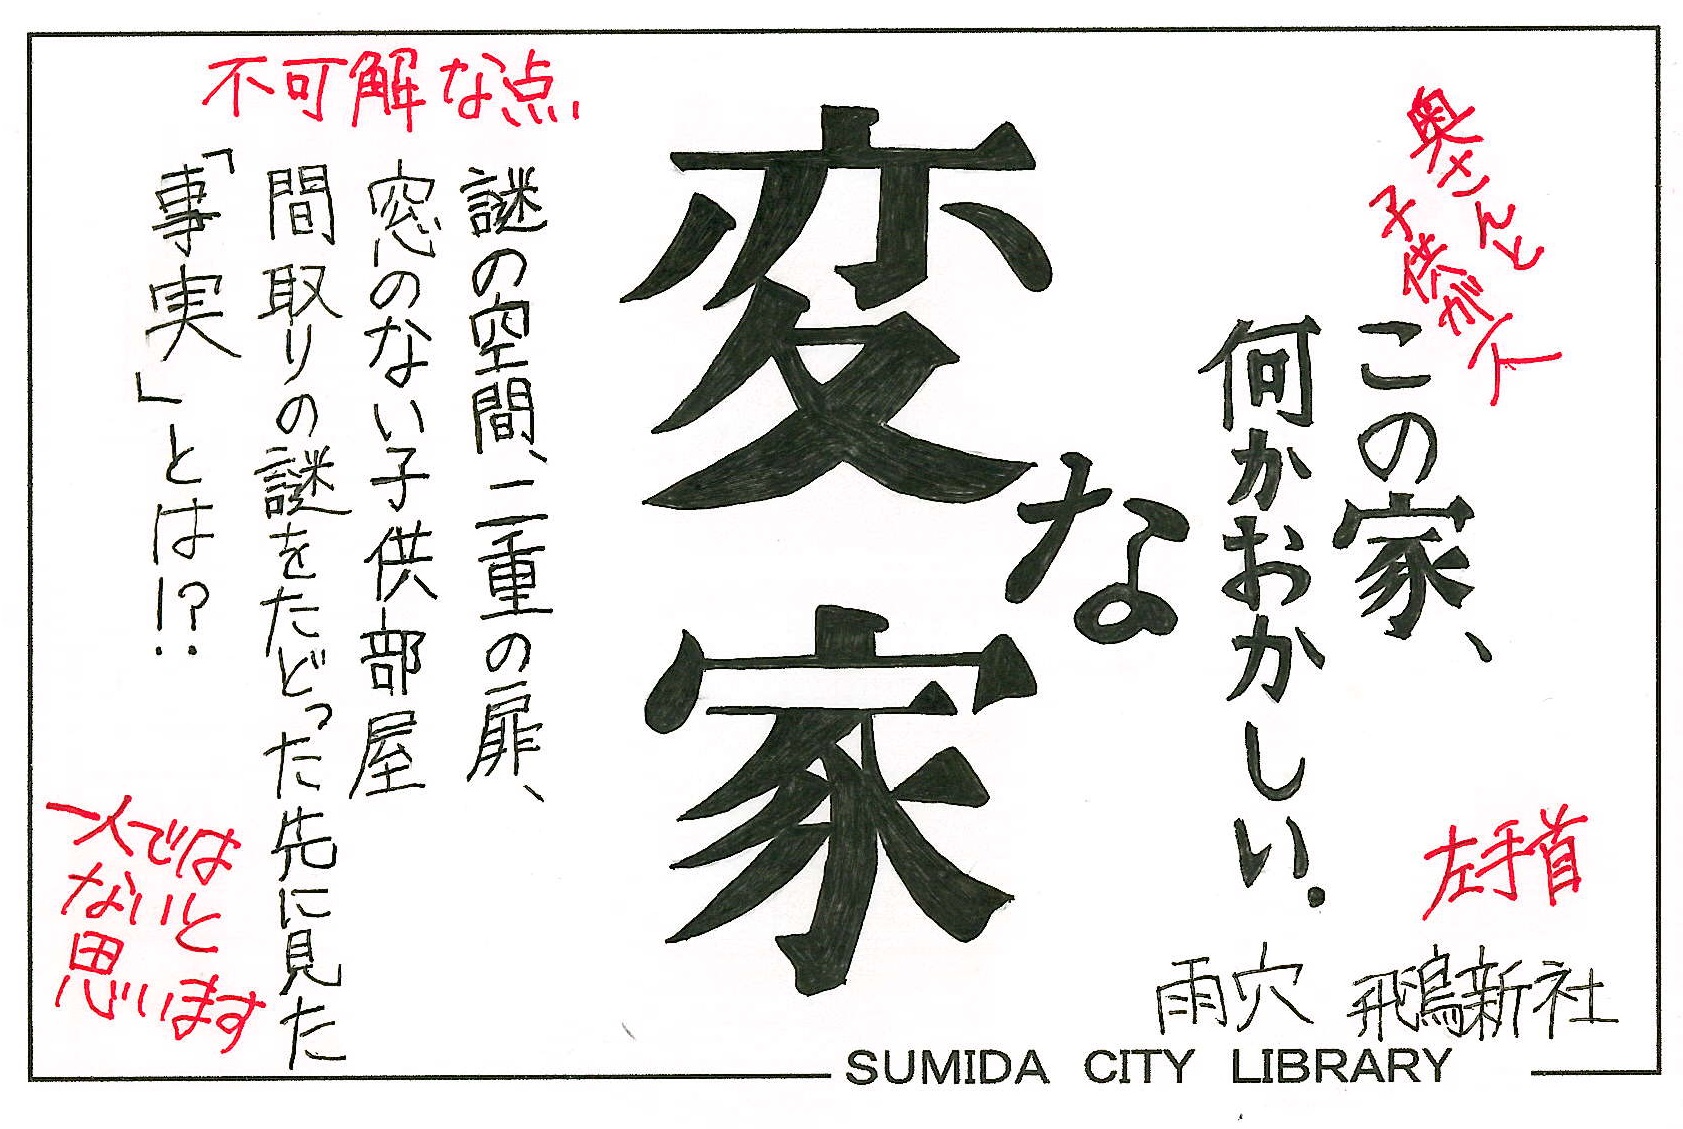 奥さんと
子供が一人
この家、
何かおかしい。
変な家
左手首
雨穴 飛鳥新社
不可解な点
謎の空間、二重の扉、
窓のない子供部屋
間取りの謎をたどった先に見た
「事実」とは!?
一人では
ないと
思います
SUMIDA CITY LIBRARY